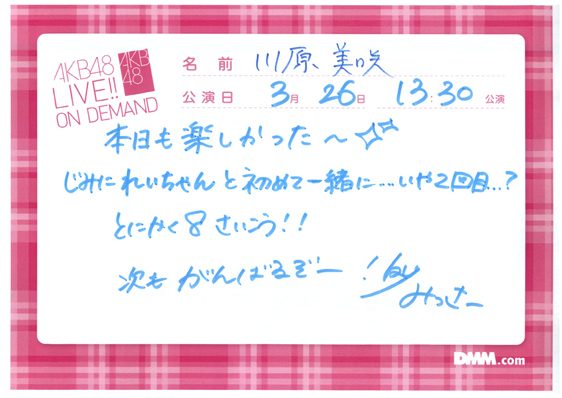 AKB48
LIVE!!
ON DEMAND
AKB
48
名前 川原美咲
公演日 3月 26日 13:30 公演
本日も楽しかった〜
じみにれいちゃんと初めて一緒に…いや2回目…?
とにかく8さいこう!!
次もがんばるぞー!by
みっさー
DMM.com